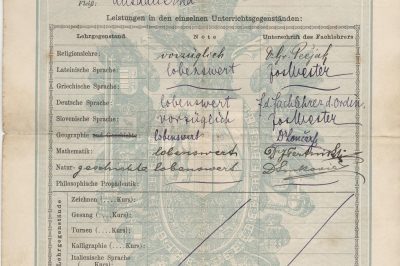 Leistungen in den einzelnen Unterrichtsgegenständen:
Lehrgegenstand Note Unterschrift des Fachlehrers
Religionslehre: vorzüglich
Lateinische Sprache: lobenswert Jos. Wester
Griechische Sprache:
Deutsche Sprache: lobenswert f. d. Fachlehrer d. Orden.
Slovenische Sprache: vorzüglich Jos. Wester
Geographie und Geschichte lobenswert
Mathematik: lobenswert
Naturgeschichte lobenswert
Philosophische Propädeutik:
Lehrgegenstände
Zeichnen (....Kurs):
Gesang (....Kurs):
Turnen (....Kurs):
Kalligraphie (....Kurs):
Italienische Sprache
(....Kurs):